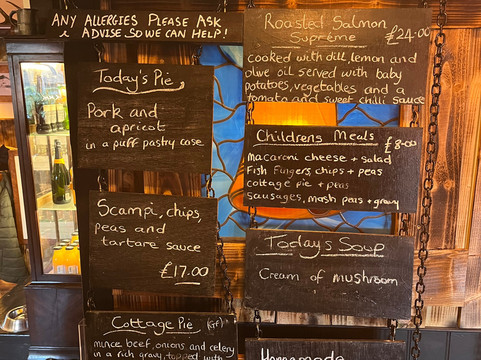 ANY ALLERGIES PLEASE ASK
& ADVISE SO WE CAN HELP!
Today's Pie
Pork and
apricot
in a puff pastry case
Scampi, chips,
peas and
tartare sauce
£17.00
Cottage Pie (GF)
mince beef, onions and celery
in a rich gravy, topped with
Roasted Salmon
Supreme £24.00
cooked with dill, lemon and
olive oil served with baby
potatoes, vegetables and a
tomato and sweet chilli sauce
Childrens Meals
£8.00
macaroni cheese + salad
Fish Fingers, chips + peas
cottage pie + peas
sausages, mash peas + gravy
Today's Soup
Cream of mushroom
Homemade